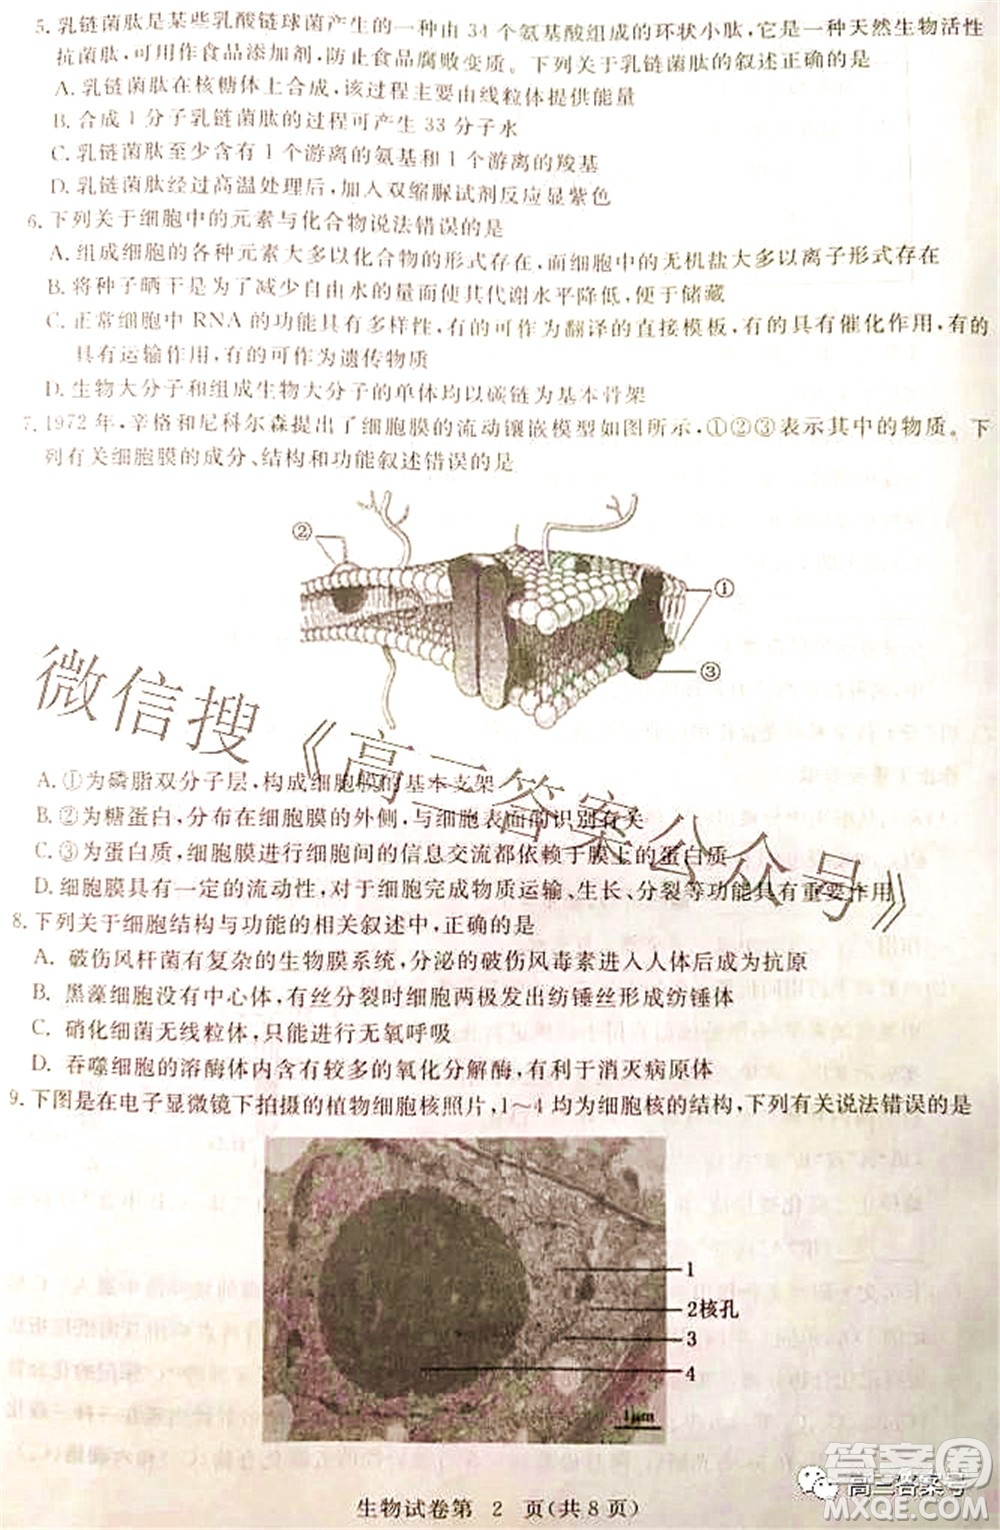 5. 乳链菌肽是某些乳酸链球菌产生的一种由 34 个氨基酸组成的环状小肽，它是一种天然生物活性
抗菌肽，可用作食品添加剂，防止食品腐败变质。下列关于乳链菌肽的叙述正确的是
A. 乳链菌肽在核糖体上合成，该过程主要由线粒体提供能量
B. 合成 1 分子乳链菌肽的过程可产生 33 分子水
C. 乳链菌肽至少含有 1 个游离的氨基和 1 个游离的羧基
D. 乳链菌肽经过高温处理后，加入双缩脲试剂反应显紫色
6. 下列关于细胞中的元素与化合物说法错误的是
A. 组成细胞的各种元素大多以化合物的形式存在，而细胞中的无机盐大多以离子形式存在
B. 将种子晒干是为了减少自由水的量而使其代谢水平降低，便于储藏
C. 正常细胞中 RNA 的功能具有多样性，有的可作为翻译的直接模板，有的具有催化作用，有的
具有运输作用，有的可作为遗传物质
D. 生物大分子和组成生物大分子的单体均以碳链为基本骨架
7. 1972 年，辛格和尼科尔森提出了细胞膜的流动镶嵌模型如图所示，①②③表示其中的物质。下
列有关细胞膜的成分、结构和功能叙述错误的是
②
①
③
微信搜《高三答案公众号》
A. ①为磷脂双分子层，构成细胞膜的基本支架
B. ②为糖蛋白，分布在细胞膜的外侧，与细胞表面的识别有关
C. ③为蛋白质，细胞间进行细胞间的信息交流都依赖于膜上的蛋白质
D. 细胞膜具有一定的流动性，对于细胞完成物质运输、生长、分裂等功能具有重要作用
8. 下列关于细胞结构与功能的相关叙述中，正确的是
A. 破伤风杆菌有复杂的生物膜系统，分泌的破伤风毒素进入人体后成为抗原
B. 黑藻细胞没有中心体，有丝分裂时细胞两极发出纺锤丝形成纺锤体
C. 硝化细菌无线粒体，只能进行无氧呼吸
D. 吞噬细胞的溶酶体内含有较多的氧化分解酶，有利于消灭病原体
9. 下图是在电子显微镜下拍摄的植物细胞核照片，1～4 均为细胞核的结构，下列有关说法错误的是
1
2核孔
3
4
1μm
生物试卷第 2 页(共 8 页)
答案圈
高三答案号